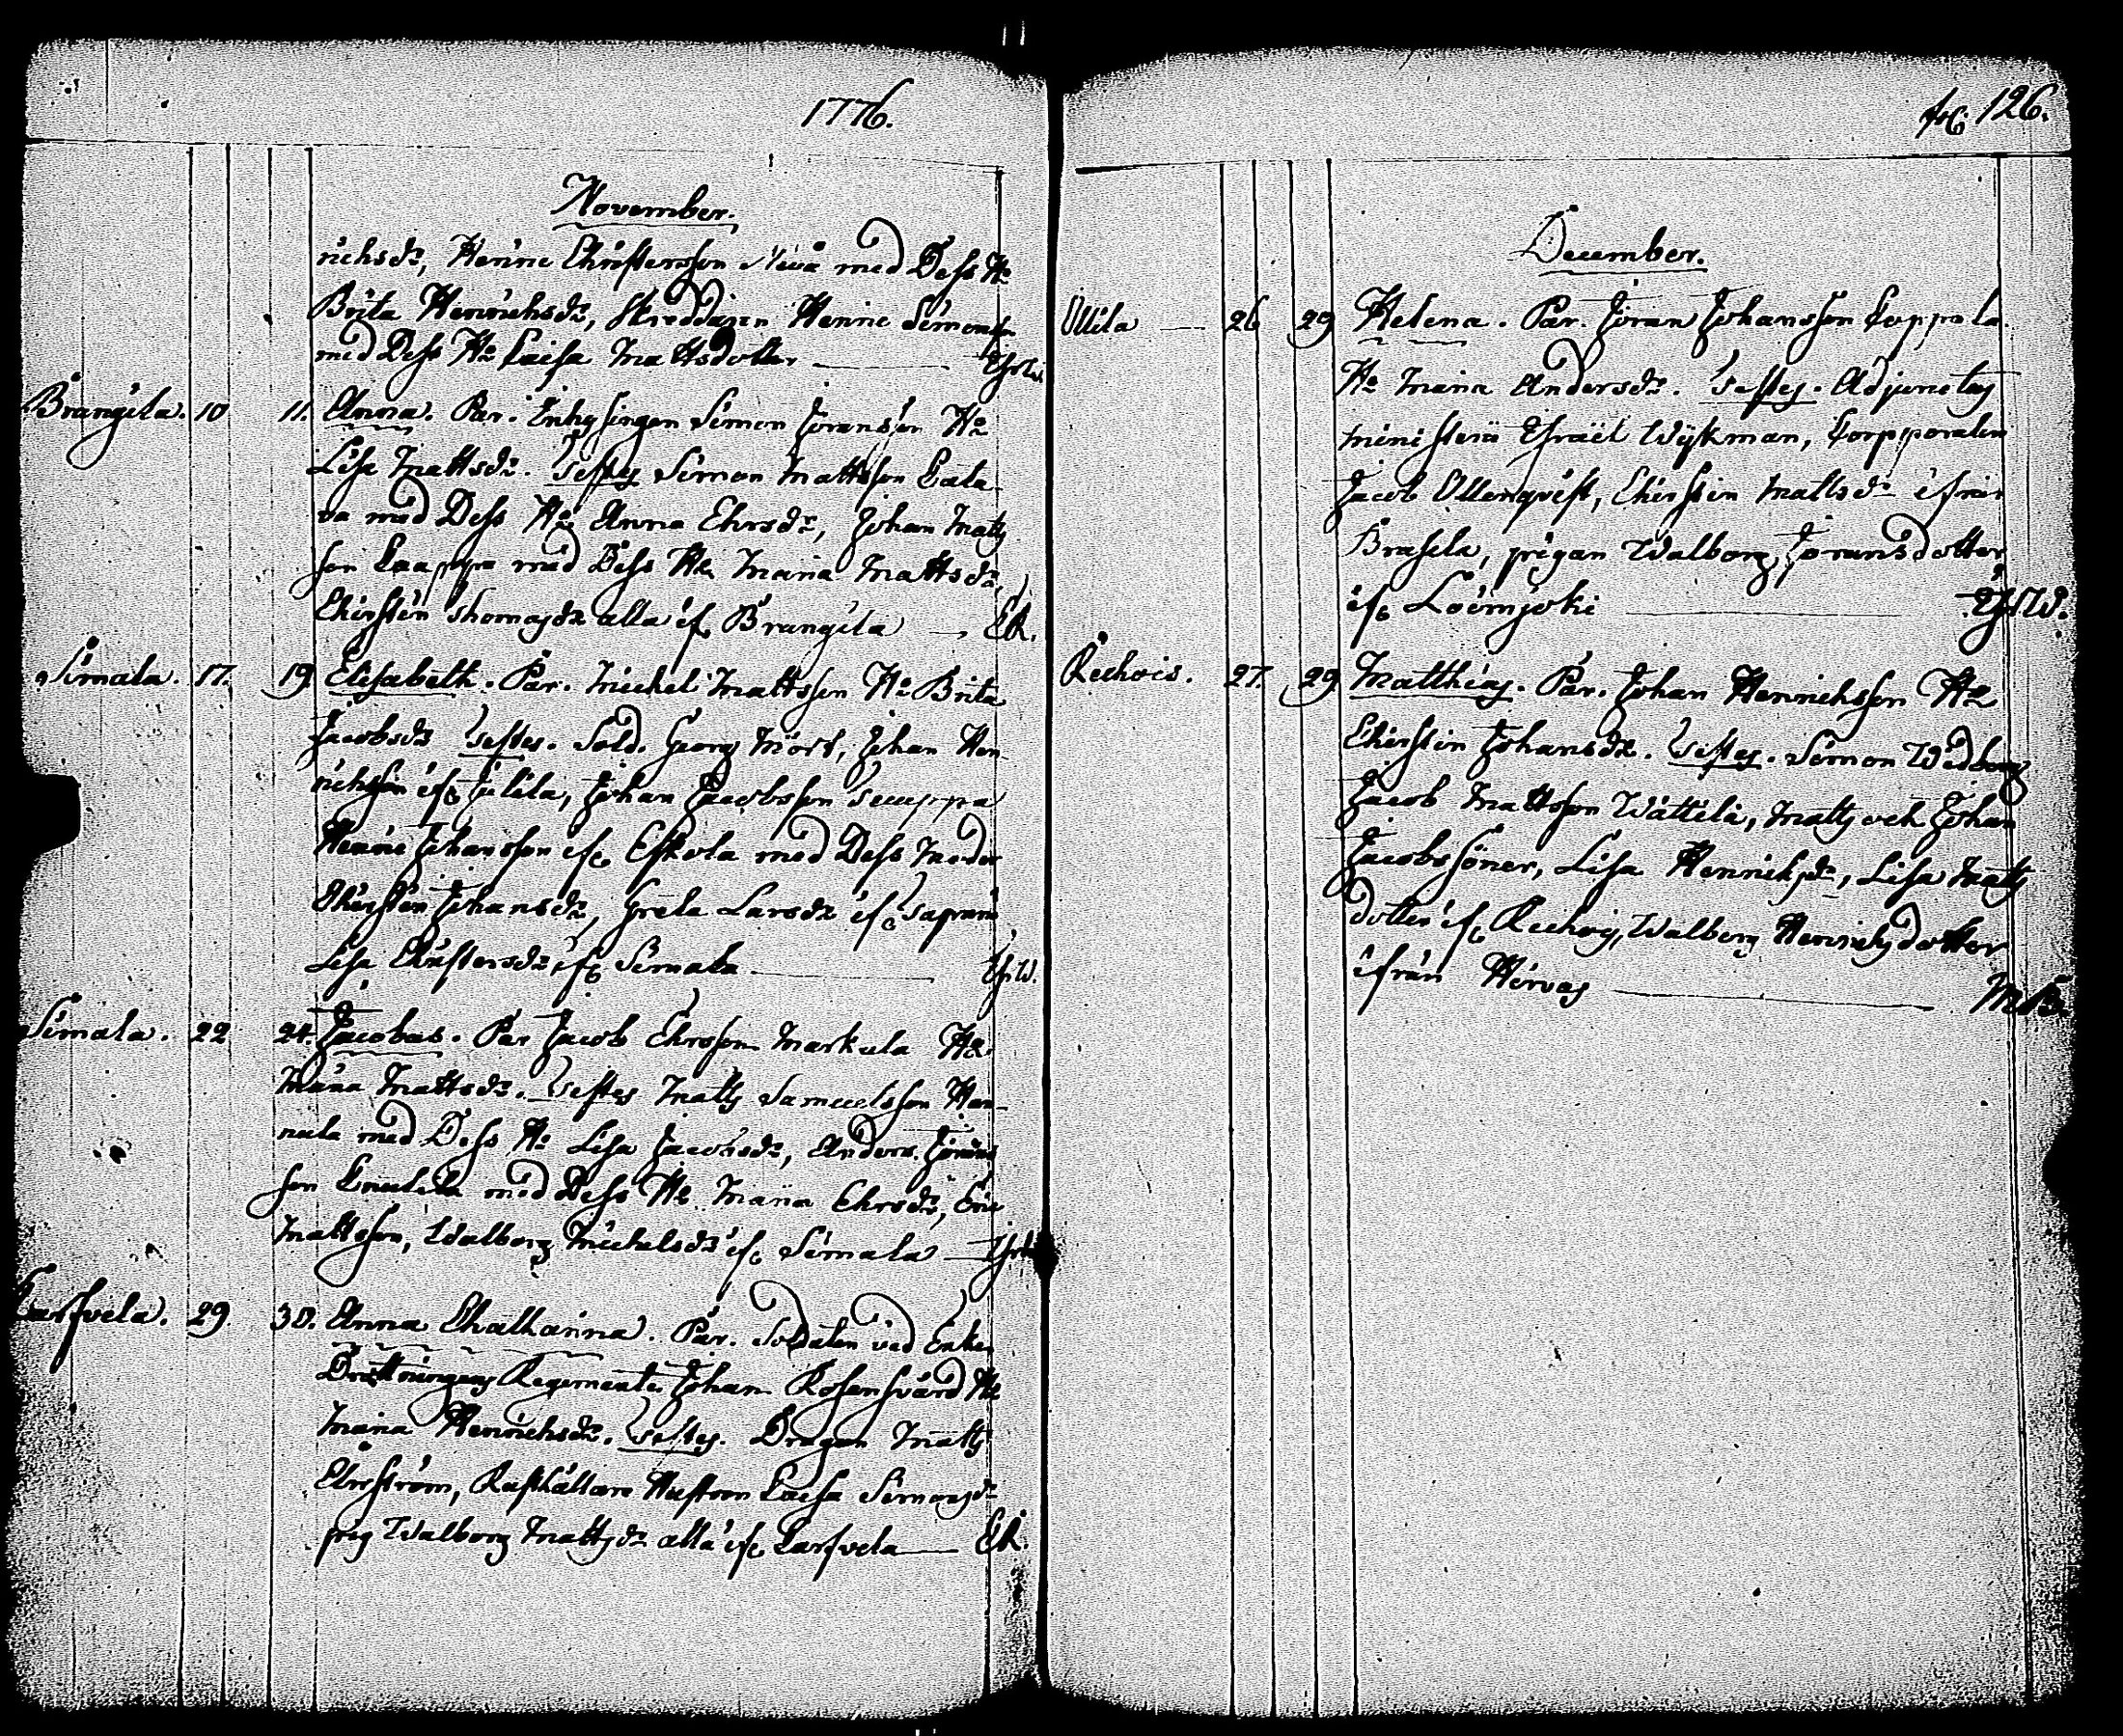 1776.
November.
richsdr, Henric Christersson Neva med Dess H:
Brita Henrichsdr, Skreddaren Henric Simonss.
med Dess H: Caisa Mattsdotter
Brangila. 10 11. Anna. Par. Inhysingen Simon Joransson H:
Lisa Mattsdr. Testes Simon Mattsson Cala-
va med Dess H: Anna Ehrsdr, Johan Matts
son Caappa med Dess H: Maria Mattsdr,
Chirstin Thomasdr alla if. Brangila — ER.
Simala. 17. 19. Elisabeth. Par. Michel Mattsson H: Brita
Jacobsdr Testes. Sold. Georg Mört, Johan Hen-
richsson if. Jutila, Johan Jacobsson Seuppa
Henric Johansson if. Eskola med Dess Moder
Chirstin Johansdr, Greta Larsdr if.
Lisa Christersdr if. Simala — EsW.
Simala. 22 24. Jacobus. Par Jacob Ehrsson Markula H:
Maria Mattsdr. Testes Matts Samuelsson Han-
nula med Dess H: Lisa Jacobsdr, Anders Jörans
son Knutila med Dess H: Maria Ehrsdr, Eric
Mattsson, Walborg Michelsdr if. Simala
Carfvela. 29. 30. Anna Chatharina. Par. Soldaten vid Enke
Drottningens Regemente Johan Rosensvärd H:
Maria Henrichsdr. Testes. Dragon Matts
Ehrström, Rusthållare Hustron Caisa Simonsdr
pig Walborg Mattsdr alla if. Carfvela — ER.
126.
December.
Ollila — 26 29 Helena. Par. Jöran Johansson Coppala
H: Maria Andersdr. Testes. Adjunctus
Ministerii Esraël Wykman, Corpporalen
Jacob Ollenqvist, Chirstin Mattsdr ifrån
Brasila, pigan Walborg Joransdotter
if. Loimjoki — EsW.
Rechois. 27. 29 Matthias. Par. Johan Henrichsson H:
Chirstin Johansdr. Testes. Simon Widberg
Jacob Mattsson Wättilä, Matts och Johan
Jacobssöner, Lisa Henriksdr, Lisa Matts
dotter if. Rechois, Walborg Henrichsdotter
ifrån Hirvas — MB.